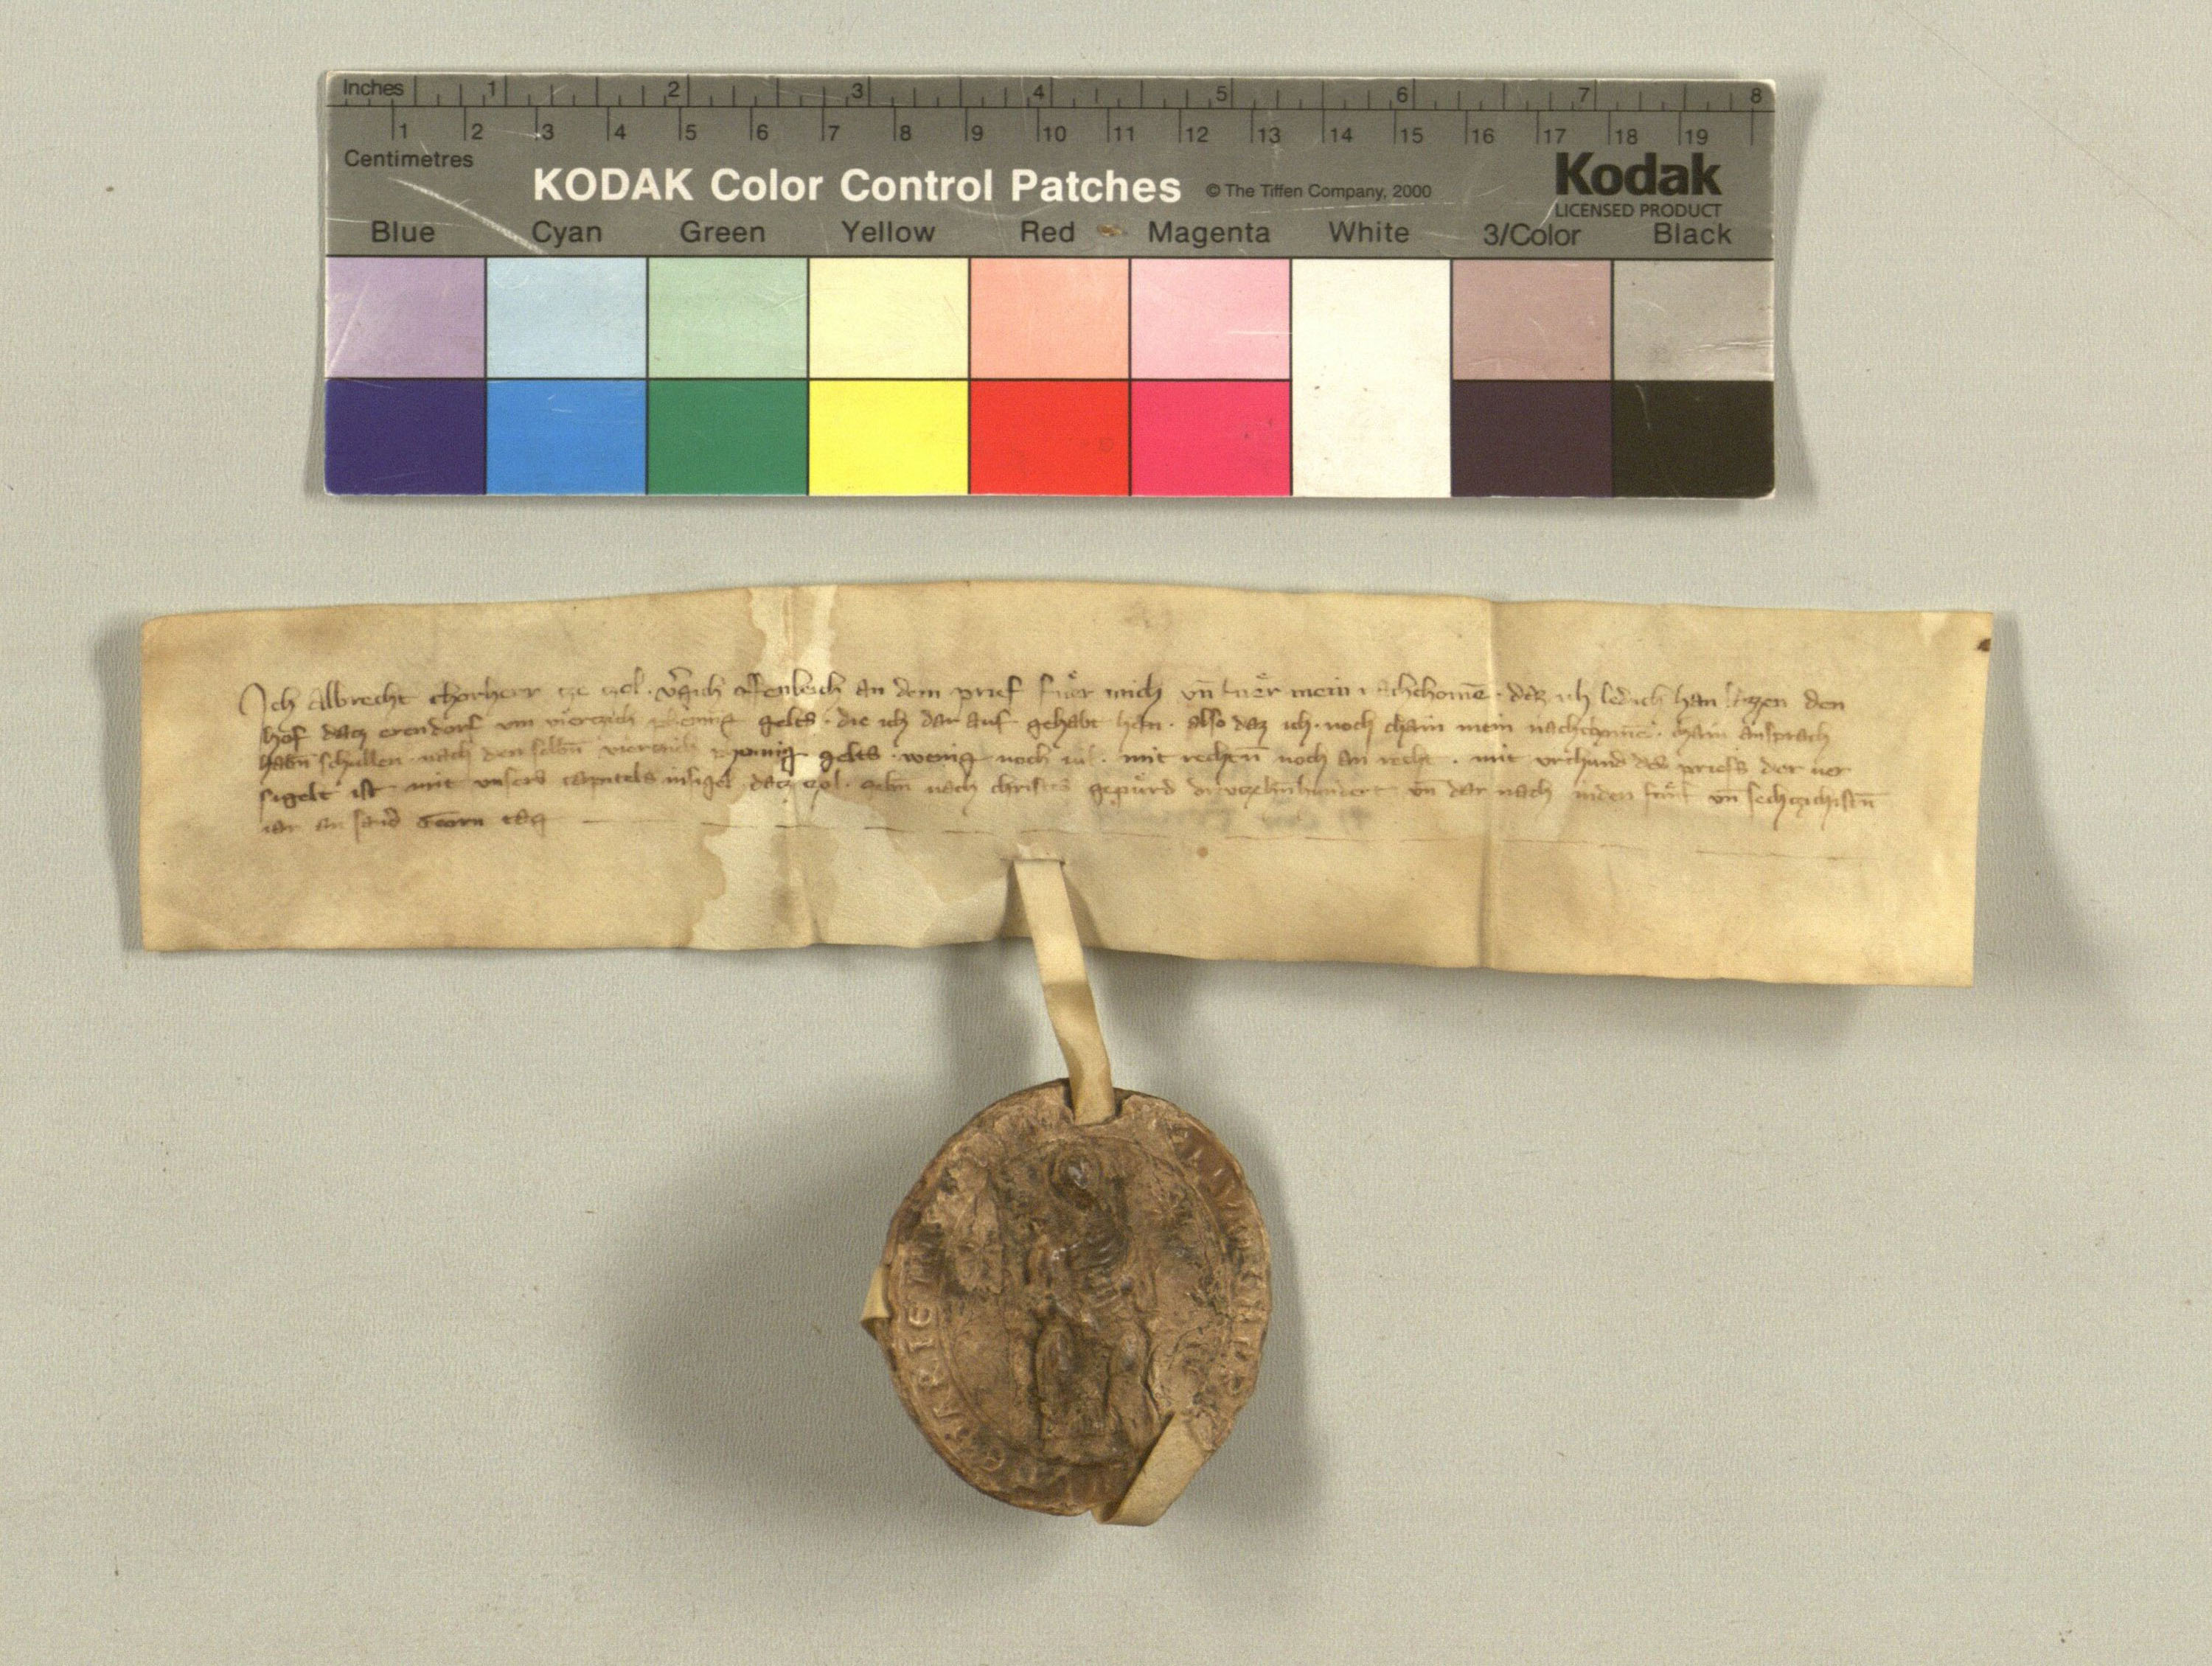 Inches 1 2 3 4 5 6 7 8
1 2 3 4 5 6 7 8 9 10 11 12 13 14 15 16 17 18 19
Centimetres
KODAK Color Control Patches © The Tiffen Company, 2000 Kodak
LICENSED PRODUCT
Blue Cyan Green Yellow Red Magenta White 3/Color Black
Ich Albrecht chorherr cze czel · v̄gich offenleich an dem prief fuͤer mich vn̄ fuͤer mein nachchomē · daz ich ledich han lazzen den
hof dacz erendorf vm vierczich phening gelts · die ich dar auf gehabt han · also daz ich · noch chain mein nachchomē · chain ansprach
habn̄ schullen · nach den selbn̄ vierczich phennig gelts · wenig noch uil · mit rechtn̄ noch an recht · mit vrchund des priefs der uer
sigelt ist mit vnsers capitels insigel dacz czel · gebn̄ nach christes gepuͤrd drevczehnhundert vn̄ dar nach inden fuͤnf vn̄ sechczichistn̄
iar an sand Georn tag